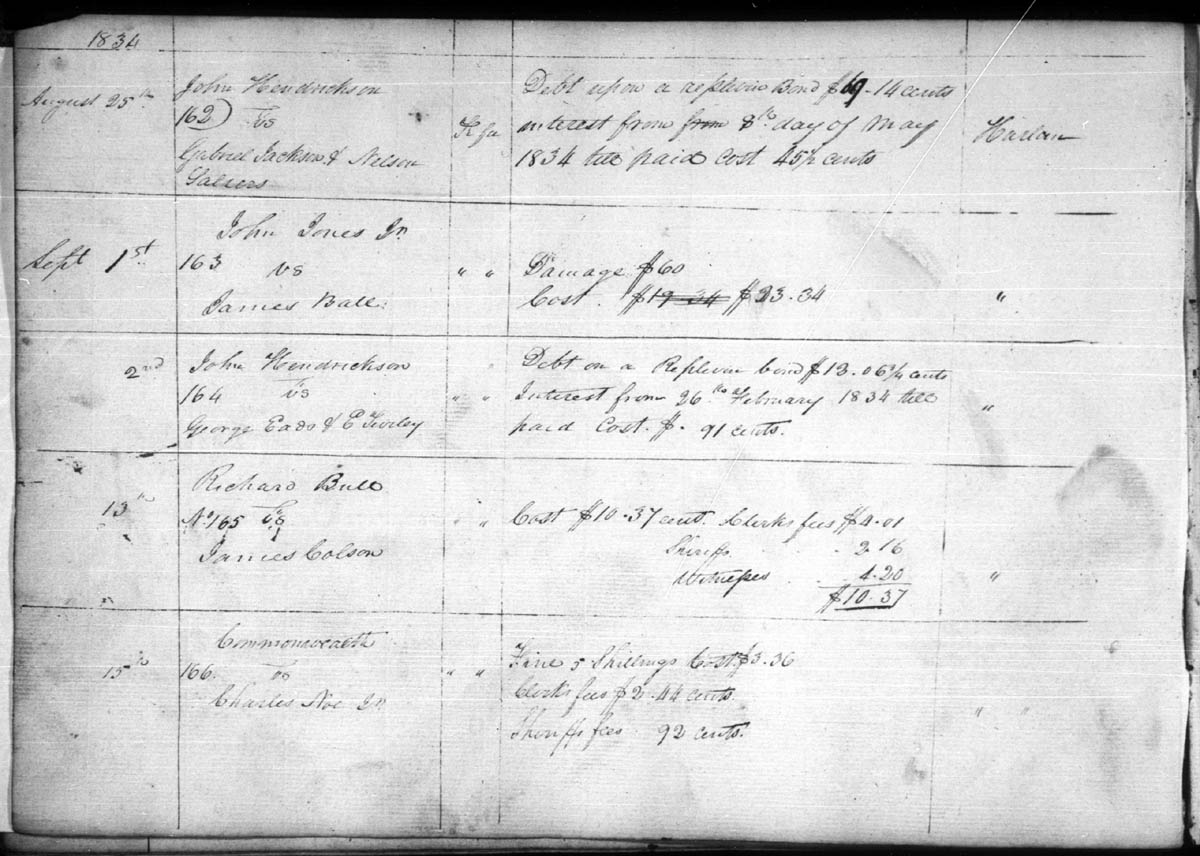 1834
August 25th John Hendrickson Debt upon a replevin Bond $19.14 cents
162) vs Fi fa interest from from 8th day of May Harlan
Gabriel Jackson & Nelson 1834 till paid Cost 45 1/2 cents
John Jones Jr
Sept 1st 163 vs " " Damage $60
James Ball Cost. $19-34 $23.34 "
2nd John Hendrickson Debt on a Replevin bond $13.06 1/4 cents
164 vs " " Interest from 26th of February 1834 till "
George Eads & E paid Cost. $. 91 cents.
Richard Bull
13th No 165 vs " " Cost $10.37 cent. Clerks fees $4.01
James Colson Sheriffs 2 16
Witnesses 4.20 "
$10.37
Commonwealth
15th 166. vs " " Fine 5 Shillings Cost $3.36
Charles Noe Jr Clerks fees $2.44 cents. " "
Sheriffs fees 92 cents.